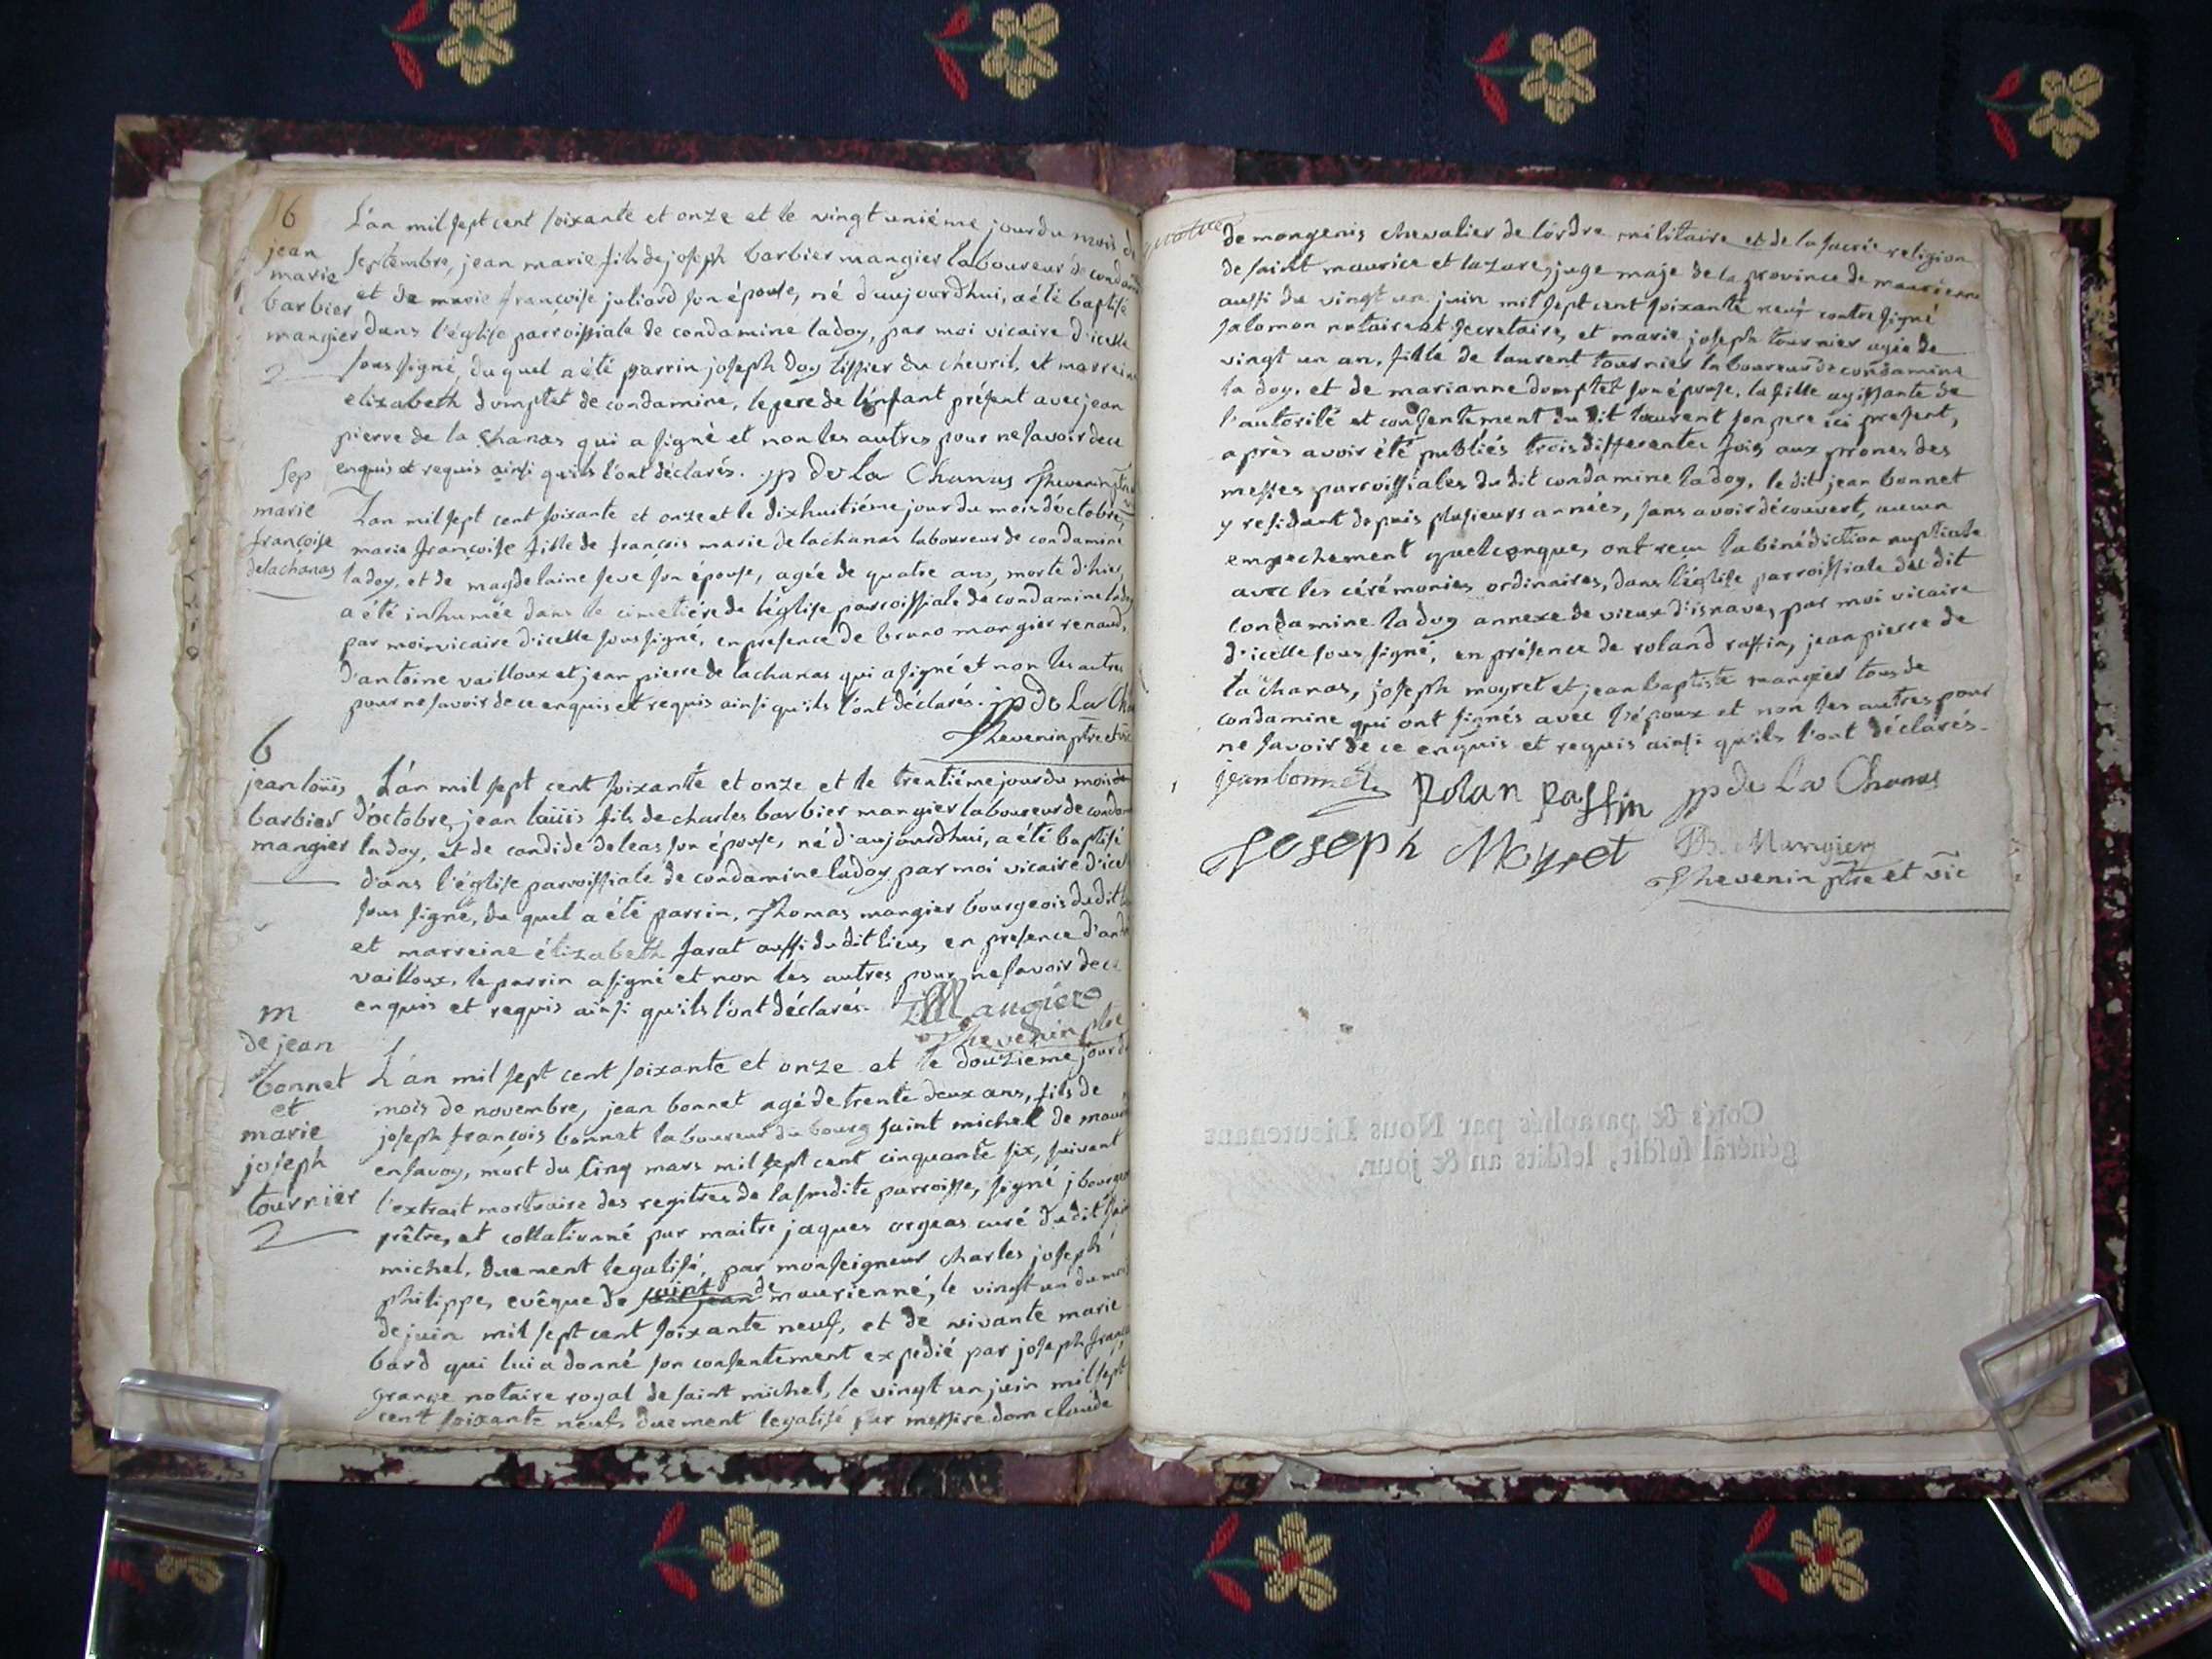 6
jean
marie
barbier
mangier
L'an mil sept cent soixante et onze et le vingt uniéme jour du mois de
septembre, jean marie fils de joseph barbier mangier laboureur de condamine
et de marie françoise juliard son épouse, né d'aujourdhui, a été baptisé
dans l'église parroissiale de condamine ladoy, par moi vicaire d'icelle
sous signé, du quel a été parrin joseph doy tissier du chevril, et marreine
elizabeth domptet de condamine, le pere de l'enfant présent avec jean
pierre de la chanas qui a signé et non les autres pour ne savoir de ce
enquis et requis ainsi quils l'ont déclarés. jp de La Chanas Thevenin
Sep
marie
françoise
delachanas
L'an mil sept cent soixante et onze et le dixhuitiéme jour du mois d'octobre,
marie françoise fille de françois marie delachanas laboureur de condamine
ladoy, et de magdelaine seve son épouse, agée de quatre ans, morte d'hier,
a été inhumée dans le cimetiére de l'église parroissiale de condamine ladoy
par moi vicaire d'icelle sous signé, en presence de bruno mangier renaud,
d'antoine vailloux et jean pierre de lachanas qui a signé et non les autres
pour ne savoir de ce enquis et requis ainsi qu'ils l'ont déclarés. jp de La Cha
Thevenin ptre et vic
6
jean loüis
barbier
mangier
L'an mil sept cent soixante et onze et le trentiéme jour du mois
d'octobre, jean loüis fils de charles barbier mangier laboureur de condamine
ladoy, et de candide deleas son épouse, né d'aujourdhui, a été baptisé
dans l'église parroissiale de condamine ladoy par moi vicaire d'icelle
sous signé, du quel a été parrin, Thomas mangier bourgeois dudit
et marreine élizabeth farat aussi du dit lieu, en presence d'antoine
vailloux, le parrin a signé et non les autres pour ne savoir de ce
enquis et requis ainsi qu'ils l'ont déclarés. Mangier
Thevenin ptre
m
de jean
bonnet
et
marie
joseph
tournier
L'an mil sept cent soixante et onze et le douzieme jour du
mois de novembre, jean bonnet agé de trente deux ans, fils de
joseph françois bonnet laboureur du bourg saint michel de maurienne
en savoy, mort du cinq mars mil sept cent cinquante six, suivant
l'extrait mortuaire des registres de la susdite parroisse, signé j bourgeois
prêtre, et collationné par maitre jaques orgeas curé du dit saint
michel, duement legalisé, par monseigneur charles joseph
philippe, evêque de saint jean de maurienne, le vingt un du mois
de juin mil sept cent soixante neuf, et de vivante marie
bard qui lui a donné son consentement expedié par joseph françois
grange notaire royal de saint michel, le vingt un juin mil sept
cent soixante neuf, duement legalisé par messire dom claude
de mongenis chevalier de l'ordre militaire et de la sacrée religion
de saint maurice et lazare, juge maje de la province de maurienne
aussi du vingt un juin mil sept cent soixante neuf contre signé
salomon notaire et secretaire, et marie joseph tournier agée de
vingt un an, fille de laurent tournier laboureur de condamine
la doy, et de marianne domptet son épouse, la fille agissante de
l'autorité et consentement du dit laurent son pere ici present,
après avoir été publiés trois differentes fois aux prones des
messes parroissiales du dit condamine la doy, le dit jean bonnet
y residant depuis plusieurs années, sans avoir découvert, aucun
empechement quelconque, ont reçu la bénédiction nuptiale
avec les cérémonies ordinaires, dans l'église parroissiale du dit
condamine ladoy annexe de vieux d'isnave, par moi vicaire
d'icelle sous signé, en présence de roland raffin, jean pierre de
la chanas, joseph moyret et jean baptiste mangier tous de
condamine qui ont signés avec l'époux et non les autres pour
ne savoir de ce enquis et requis ainsi qu'ils l'ont déclarés.
jean bonnet Rolan Raffin jp de La Chanas
Joseph Moyret JB. Mangier
Thevenin ptre et vic
Cotés & paraphés par Nous Lieutenant
général susdit, lesdits an & jour.